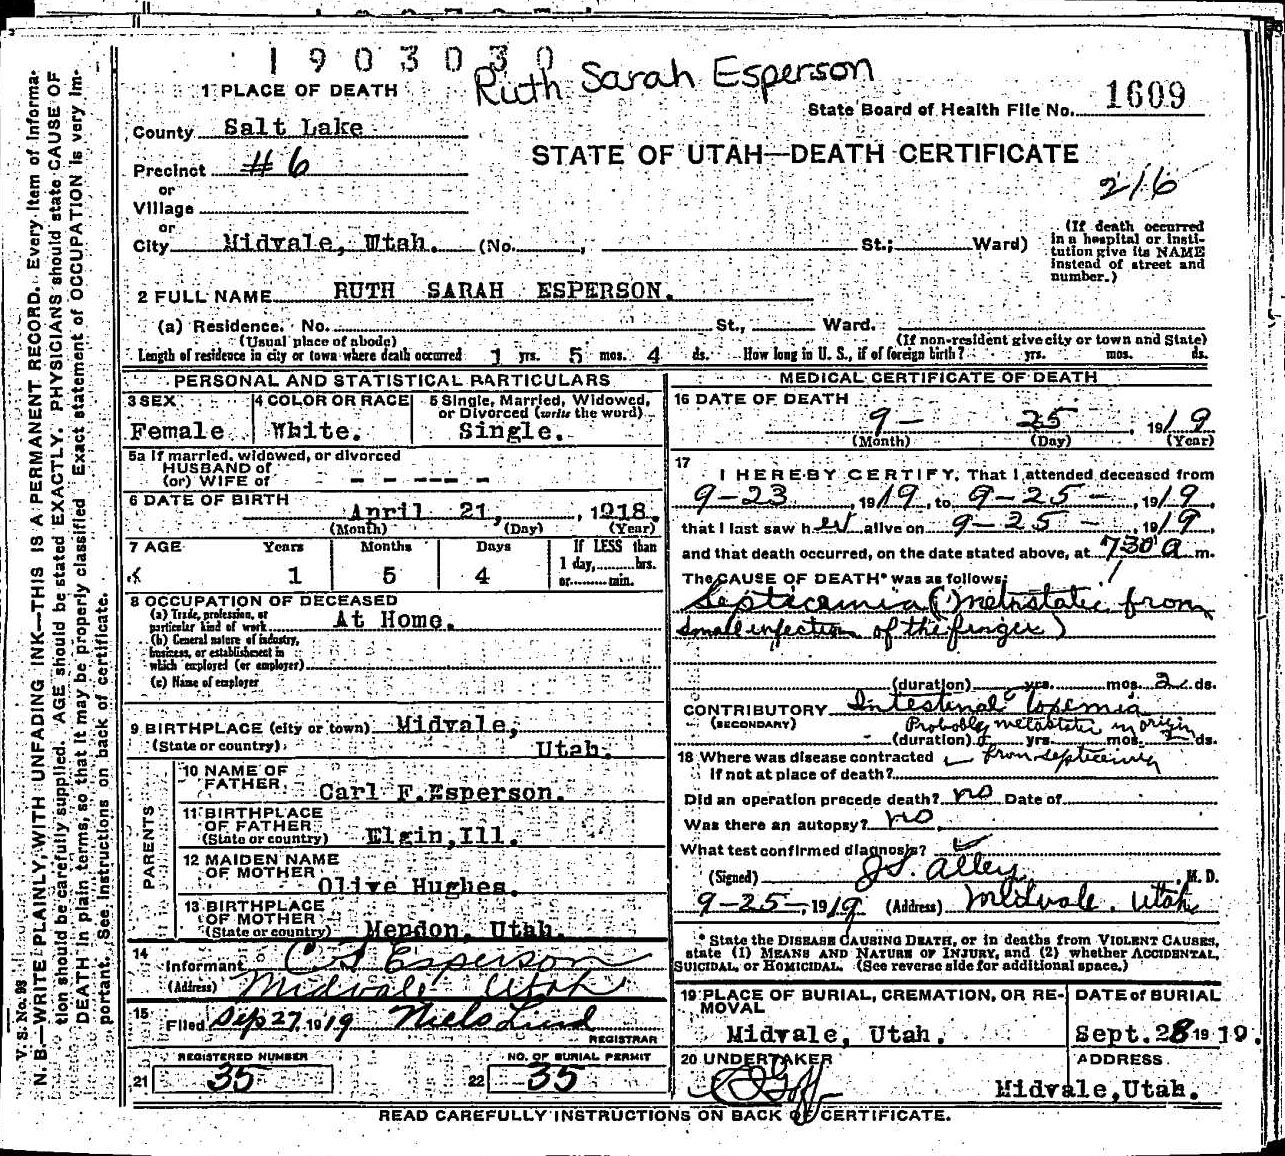 1903030
Ruth Sarah Esperson
1 PLACE OF DEATH
State Board of Health File No. 1609
County Salt Lake
STATE OF UTAH—DEATH CERTIFICATE
Precinct #6
216
or
Village
or
City Midvale, Utah. (No. , St.; Ward)
(If death occurred in a hospital or institution give its NAME instead of street and number.)
2 FULL NAME RUTH SARAH ESPERSON.
(a) Residence. No. St., Ward.
(Usual place of abode) (If non-resident give city or town and State)
Length of residence in city or town where death occurred 1 yrs. 5 mos. 4 ds. How long in U. S., if of foreign birth? yrs. mos. ds.
PERSONAL AND STATISTICAL PARTICULARS
3 SEX Female
4 COLOR OR RACE White.
5 Single, Married, Widowed, or Divorced (write the word) Single.
5a If married, widowed, or divorced
HUSBAND of
(or) WIFE of - - - - - -
6 DATE OF BIRTH April 21, , 1918.
(Month) (Day) (Year)
7 AGE Years Months Days If LESS than
1 5 4 1 day, hrs.
or min.
8 OCCUPATION OF DECEASED
(a) Trade, profession, or particular kind of work At Home.
(b) General nature of industry, business, or establishment in which employed (or employer)
(c) Name of employer
9 BIRTHPLACE (city or town) Midvale,
(State or country) Utah.
PARENTS
10 NAME OF FATHER Carl F.Esperson.
11 BIRTHPLACE OF FATHER (State or country) Elgin,Ill.
12 MAIDEN NAME OF MOTHER Olive Hughes.
13 BIRTHPLACE OF MOTHER (State or country) Mendon, Utah.
14 Informant C F Esperson
(Address) Midvale Utah
15 Filed Sep 27, 1919 Niels Lind
REGISTRAR
REGISTERED NUMBER
21 35
NO. OF BURIAL PERMIT
22 35
MEDICAL CERTIFICATE OF DEATH
16 DATE OF DEATH
9- 25 , 1919
(Month) (Day) (Year)
17 I HEREBY CERTIFY, That I attended deceased from
9-23 , 1919, to 9-25- , 1919,
that I last saw her alive on 9-25- , 1919,
and that death occurred, on the date stated above, at 730 a m.
The CAUSE OF DEATH* was as follows:
Septicemia (Metastatic from
small infection of the finger)
(duration) yrs. mos. 2 ds.
CONTRIBUTORY Intestinal toxemia
(SECONDARY) Probably metastatic in origin
(duration) yrs. mos. 2 ds.
18 Where was disease contracted from septicemia
If not at place of death?
Did an operation precede death? no Date of
Was there an autopsy? no
What test confirmed diagnosis?
(Signed) J.S. Alley M. D.
9-25-, 1919 (Address) Midvale, Utah
* State the DISEASE CAUSING DEATH, or in deaths from VIOLENT CAUSES, state (1) MEANS AND NATURE OF INJURY, and (2) whether ACCIDENTAL, SUICIDAL, or HOMICIDAL. (See reverse side for additional space.)
19 PLACE OF BURIAL, CREMATION, OR REMOVAL
Midvale, Utah.
DATE of BURIAL
Sept. 28 1919.
20 UNDERTAKER
ADDRESS
Midvale,Utah.
READ CAREFULLY INSTRUCTIONS ON BACK OF CERTIFICATE.
V. S. No. 98
N. B.—WRITE PLAINLY, WITH UNFADING INK—THIS IS A PERMANENT RECORD. Every item of information should be carefully supplied. AGE should be stated EXACTLY. PHYSICIANS should state CAUSE OF DEATH in plain terms, so that it may be properly classified. Exact statement of OCCUPATION is very important. See instructions on back of certificate.